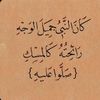 كَانَ النَّبِيُّ جَمِيلَ الوَجْهِ
رَائِحَتُهُ كَالمِسْكِ
{صَلُّوا عَلَيهِ}